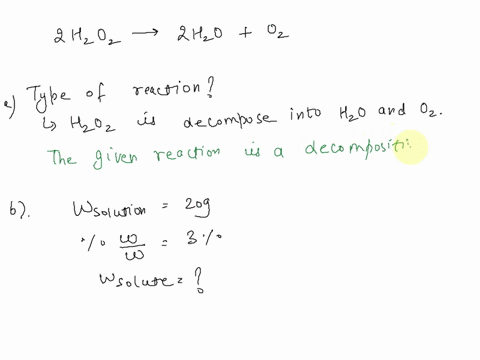 2H₂O₂ → 2H₂O + O₂
a) Type of reaction?
↳ H₂O₂ is decompose into H₂O and O₂.
The given reaction is a decompositi
b). Wsolution = 20g
% w/w = 3%
Wsolute = ?